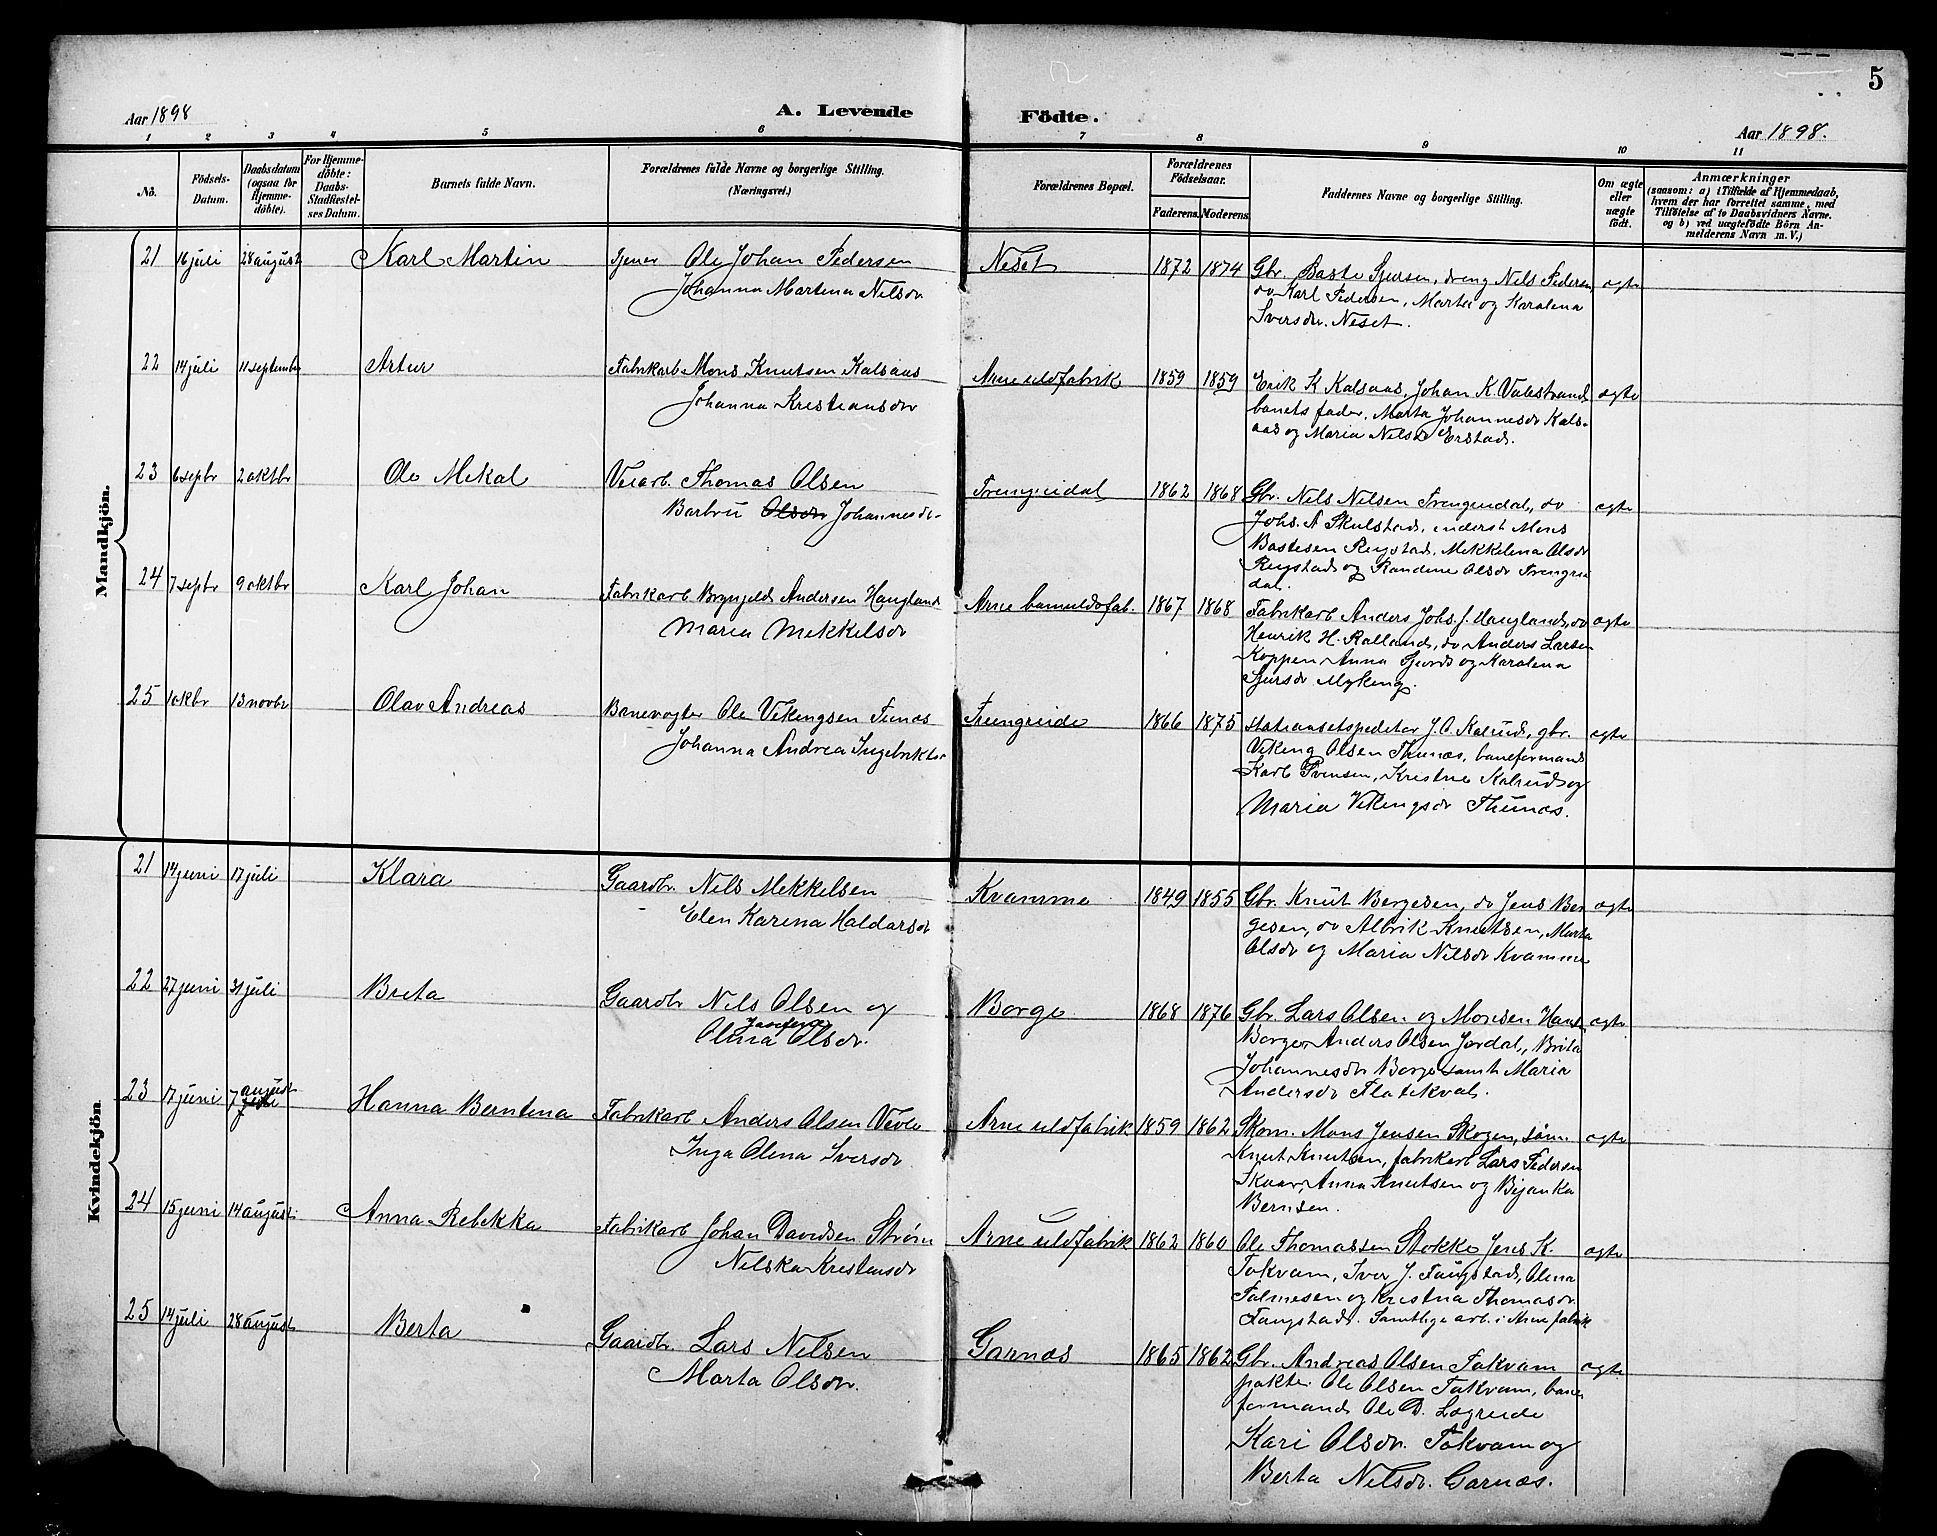 5
Aar 1898
A. Levende Födte.
Aar 1898.
1 2 3 4 5 6 7 8 9 10 11
No.
Födsels-
Datum.
Daabsdatum
(ogsaa for
Hjemme-
döbte).
For Hjemme-
döbte:
Daabs-
Stadfæstel-
ses Datum.
Barnets fulde Navn.
Forældrenes fulde Navne og borgerlige Stilling.
(Næringsvei.)
Forældrenes Bopæl.
Forældrenes
Födselsaar.
Faderens. Moderens.
Faddernes Navne og borgerlige Stilling.
Om ægte
eller
uægte
födt.
Anmærkninger
(saasom: a) i Tilfælde af Hjemmedaab,
hvem der har forrettet samme, med
Tilföielse af to Daabsvidners Navne,
og b) ved uægtefödte Börn An-
melderens Navn m. V.)
Mandkjön.
21 16 juli 28 august Karl Martin
Ole Johan Pedersen
Johanna Martina Nilsdr
Neset 1872 1874
Gbr. Baste Sjursen, dreng Nils Pedersen
do Karl Pedersen, Marta og Karolena
Iversdr. Neset.
ægte
22 14 juli 11 septembr Artur
Fabrikarb Mons Knutsen Kalsaas
Johanna Kristiansdr
Arne uldfabrik 1859 1859
Erik K Kalsaas, Johan K. Valestrand
banets fader, Marta Johannesdr Kals-
aas og Maria Nilsdr Erstad.
ægte
23 6 septbr 2 oktbr Ole Mikal
Veiarb. Thomas Olsen
Barbru Olsdr Johannesdr
Trengereidal 1862 1868
Gbr. Nils Nilsen Trengereidal, do
Johs. A Skulstad, inderst Mons
Bastesen Reystad, Mekkelena Olsdr
Reystad og Randine Olsdr Trengrei
dal.
ægte
24 7 septbr 9 oktbr Karl Johan
Fabrikarb Brynjeld Andersen Haugland
Maria Mekkelsdr
Arne bomuldsfab. 1867 1868
Fabrikarb Anders Johs. J. Haugland, do
Henrik H. Ralland, do Anders Larsen
Koppen, Anna Sjurds og Karolena
Sjursdr Myking.
ægte
25 1 oktbr 13 novbr Olav Andreas
Banevogter Ole Vikingsen Tunes
Johanna Andrea Ingebriktsr
Trengreide 1866 1875
Stationsexpeditør J. O. Kalrud, gbr.
Viking Olsen Thunes, baneformand
Karl Svensen, Kristine Kalrud og
Maria Vikingsdr Thunes.
ægte
Kvindekjön
21 14 juni 17 juli Klara
Gaardbr. Nils Mekkelsen
Elen Karina Haldorsdr
Kvamme 1849 1855
Gbr. Knut Børgesen, do Jens Bør
gesen, do Albrik Knutsen, Marta
Olsdr og Maria Nilsdr Kvamme
ægte
22 27 juni 31 juli Brita
Gaardbr Nils Olsen og
Josefine
Olina Olsdr.
Borge 1868 1876
Gbr. Lars Olsen og Monsen Hans
Borge, Anders Olsen Jordal, Brita
Johannesdr Borge samt Maria
Andersdr Flatekval.
ægte
august
23 17 juni 7 Hanna Berntina
Fabrikarb Anders Olsen Vevle
Inga Olina Iversdr.
Arne uldfabrik 1859 1862
Skom. Mons Jensen Skogen, tøm.
Knut Knutsen, fabrikarb Lars Pedersen
Skaar, Anna Knutsen og Bijanka
Bernsen.
ægte
24 15 juni 14 august Anna Rebekka
Fabrikarb Johan Davidsen Strøm
Nilska Kristensdr
Arne uldfabrik 1862 1860
Ole Thomassen Stokke, Jens K.
Tokvam, Iver J. Faugstad, Olina
Palmesen og Kristina Thomasdr.
Faugstad. Samtlige arb. i Arne fabrik
ægte
25 14 juli 28 august Berta
Gaardbr. Lars Nilsen
Marta Olsdr.
Garnæs 1865 1862
Gbr. Andreas Olsen Tokvam
Ole Olsen Tokvam, bane
formand Ole D. Lægreide
Kari Olsdr. Tokvam og
Berta Nilsdr. Garnæs.
ægte